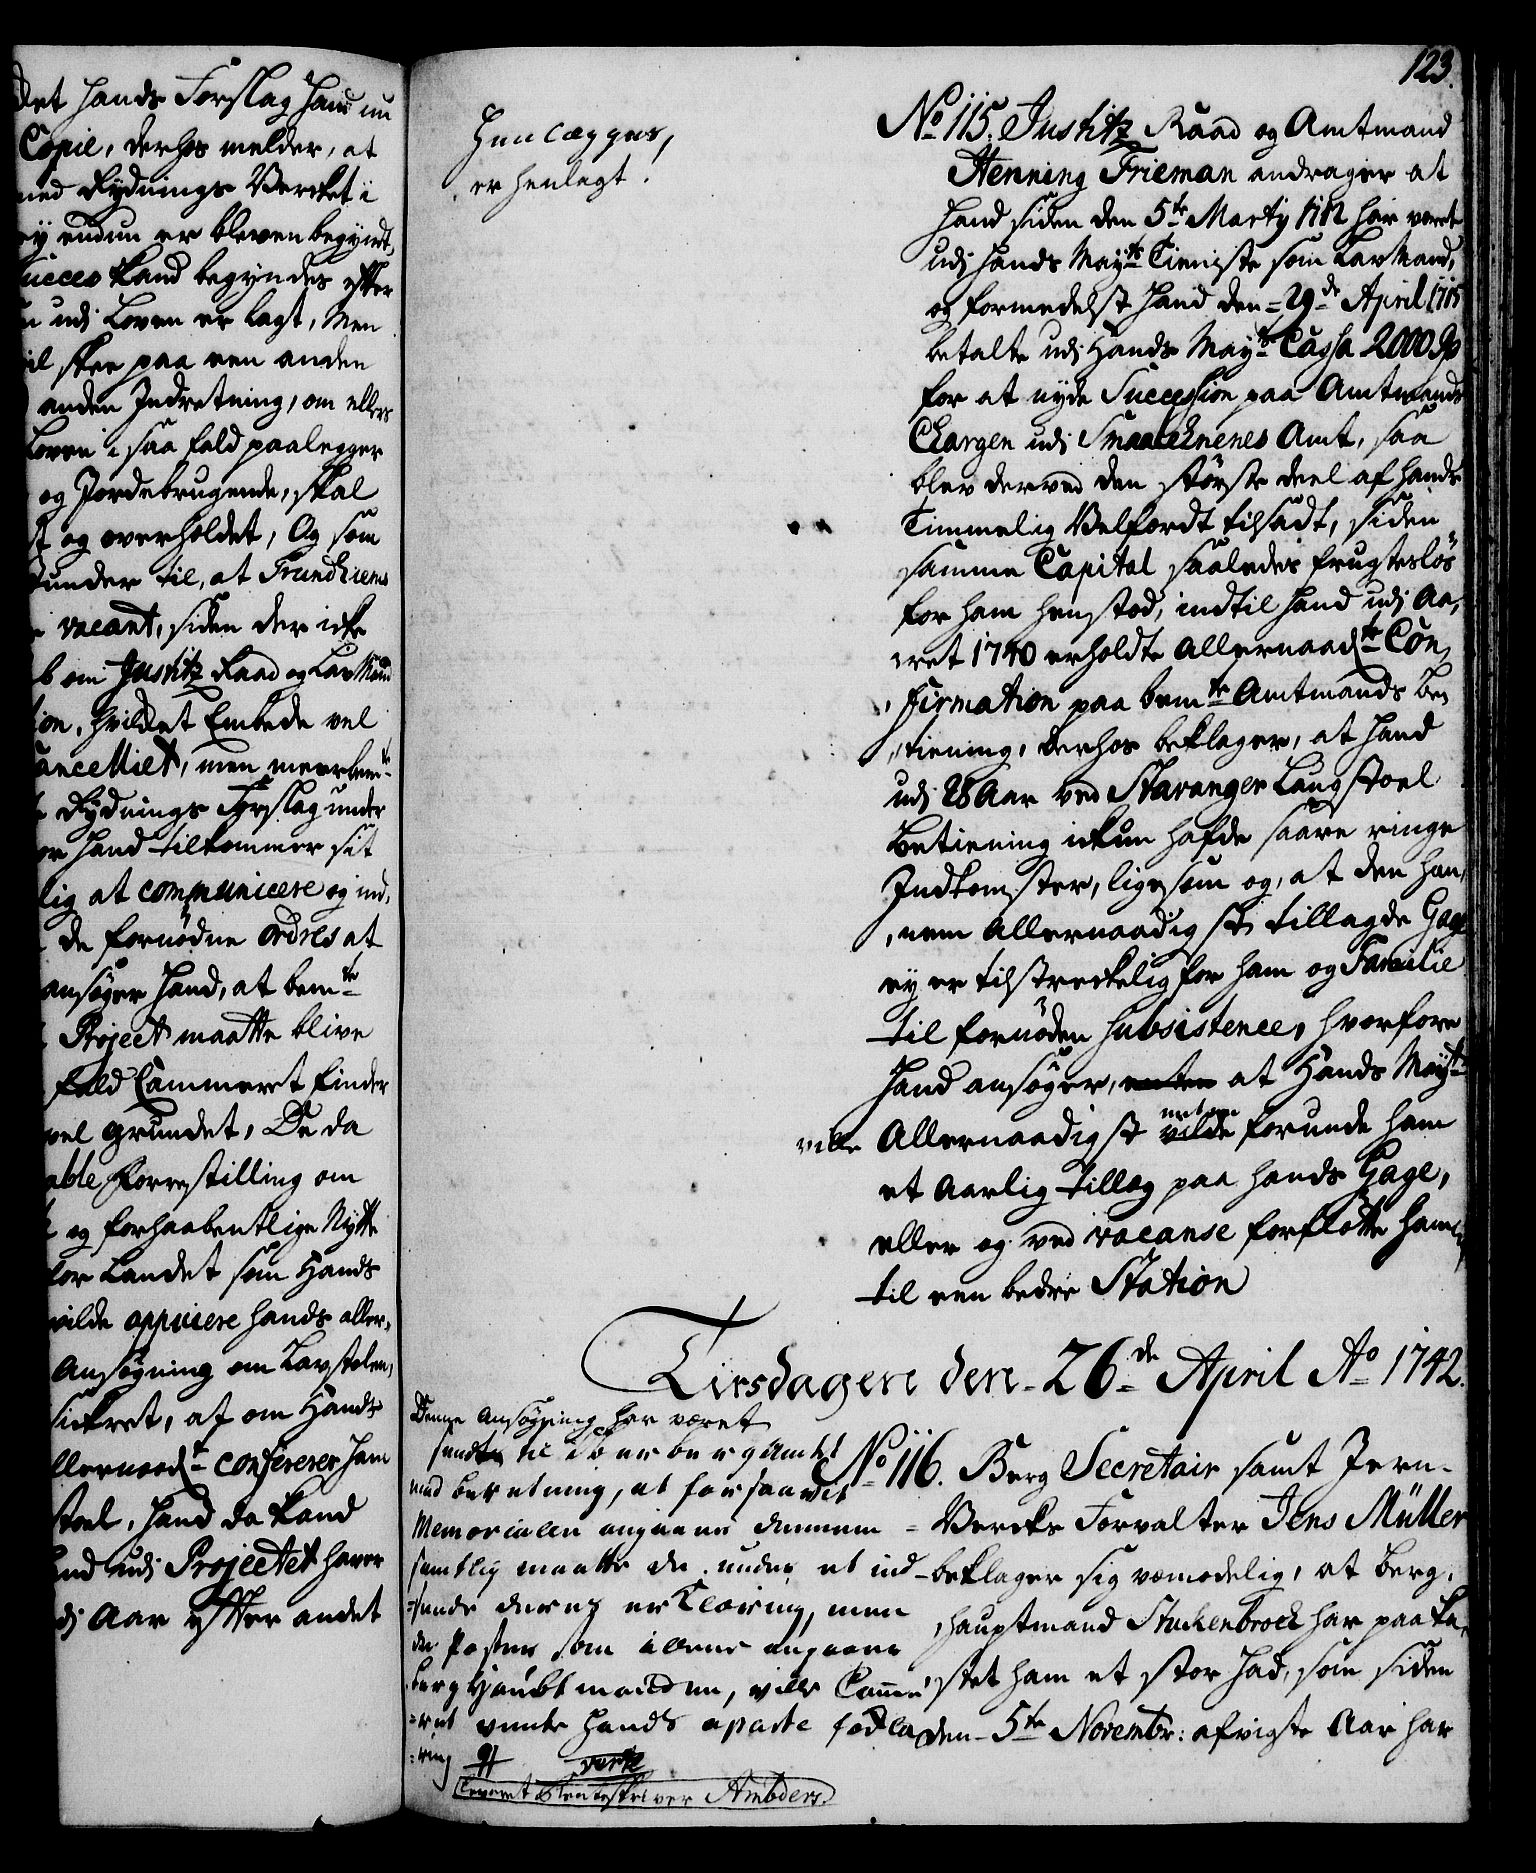 det hands Forslag hand nu
Copie, derhos melder, at
med Rydnings Vercket i
ey endnu er bleven begyndt,
succes kand begyndes efter
udi Loven er lagt, Men
vil skee paa een anden
anden Indretning, om ellers
Loven i saa fald paalegger
og Jordebrugende, skal
og overholdet, Og som
under til, at Trundhiems
vacant, siden der icke
om Justitz Raad og LavMand
tion, hvilcket Embede vel
Cancelliet, men meerbemte
Rydnings Forslag under
hand tilkommer sit
lig at communicere og ind,
de fornødne ordres at
ansøger hand, at bemte
Project maatte blive
fald Cammeret finder
vel grundet, De da
able Forrestilling om
og forhaabentlige Nytte
for Landet som Hands
vilde appuiere hands aller,
Ansøgning om Lavstolen,
sickret, at om Hands
allernaadst confererer ham
stoel, hand da kand
udi Projectet haver
Aar efter andet
123.
Henlægges,
er henlagt.
No 115. Justitz Raad og Amtmand
Henning Frieman andrager at
hand siden den 5te Martij 1712 har været
udi Hands Mayts Tieniste som LavMand,
og formedelst hand den 29de April 1715
betalte udi Hands Mayts Cassa 2000 Rd
for at nyde Succession paa Amtmands
Chargen udi Smaalehnenes Amt, saa
blev derved den største deel af hands
Timmelig Velfærdt tilsadt, siden
samme Capital saaledes frugtesløs
for ham henstod, indtil hand udi Aa,
ret 1740 erholdte Allernaadste Con,
firmation paa bemte Amtmands Be,
tiening, derhos beklager, at hand
udi 28 Aar ved Stavanger Laugstoel
Betiening ickun hafde saare ringe
Indkomster, ligesom og, at den han,
nem Allernaadigst tillagde Gage
ey er tilstreckelig for ham og Familie
til fornøden subsistence, hvorfore
hand ansøger, enten at Hands Mayt
ville Allernaadigst vilde forunde ham
enten
et Aarlig tillæg paa hands Gage,
eller og ved vacanse forflotte ham
til een bedre Station
Tirsdagen den 26de April Ao 1742.
Denne Ansøgning har været
sendte til Oberbergamtet
med beretning, at forsaavit
Memorialen angaaer dennem
samtlig maatte de under et ind
sende deres erklæring, men
de Poster som alene angaaer
berg Haubtmanden, ville Camme
ret vente hands aparte forkla
ring
Leveret Renteskriver Ambders.
No 116. Berg Secretair samt Jern
Vercks Forvalter Jens Müller
beklager sig vemodelig, at Berg,
hauptmand Stuckenbrock har paaka,
stet ham et stor had, som siden
den 5te Novembr: afvigte Aar har